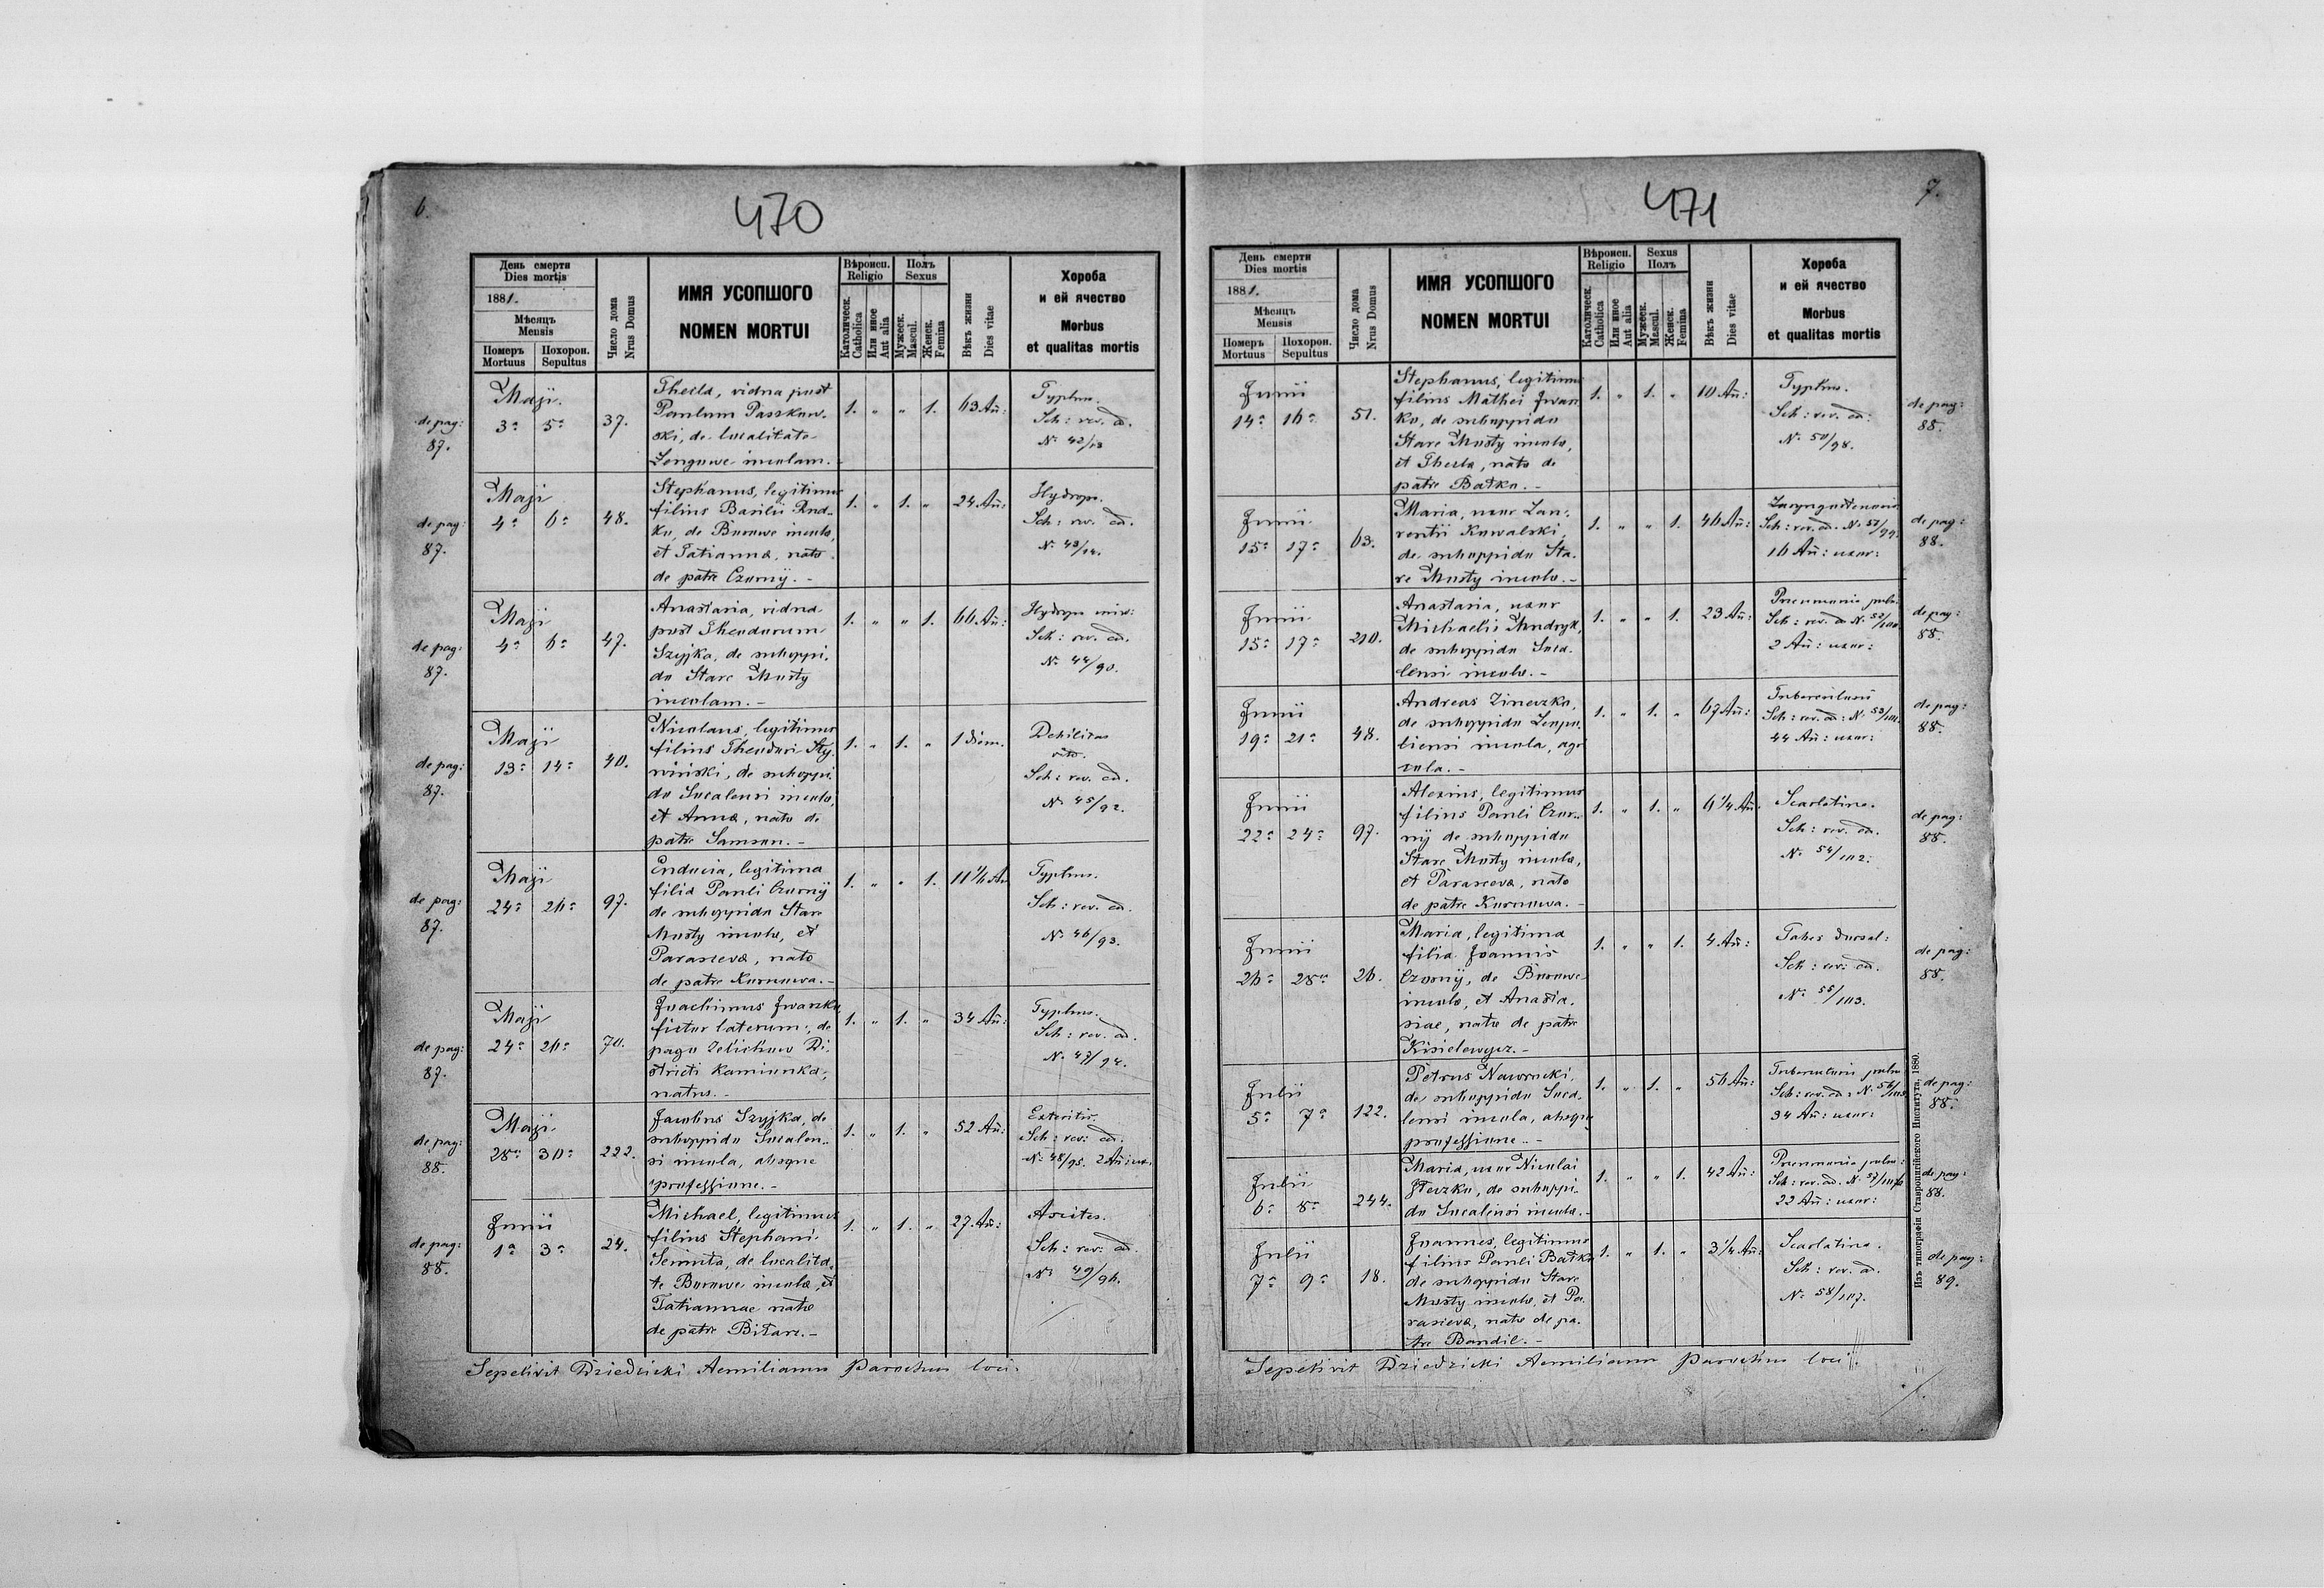 6.
470
День смерти
Dies mortis
1881.
Мѣсяцъ
Mensis
Померъ
Mortuus
Похорон.
Sepultus
Число дома
Nrus Domus
ИМЯ УСОПШОГО
NOMEN MORTUI
Вѣроисп.
Religio
Католическ.
Catholica
Или иное
Aut alia
Полъ
Sexus
Мужеск.
Mascul.
Женск.
Femina
Вѣкъ жизни
Dies vitae
Хороба
и ей ячество
Morbus
et qualitas mortis
de pag: 87.
Maji
3a 5a 37.
Thecla, vidua post
Paulum Paszkow-
ski, de localitate
incolam.
1. " " 1. 63 An:
Typhus.
Sch: rev. cd.
N. 42/
de pag: 87.
Maji
4a 6a 48.
Stephanus, legitimus
filius Basilii Rud-
ko, de Borowe incola,
et Tatianna, nata
de patre Czornÿ. -
1. " 1. " 24 An:
Hydrops.
Sch: rev. cd.
N. 43/
de pag: 87.
Maji
4a 6a 47.
Anastasia, vidua
post Theodorum
Szyjka, de suboppi-
do Stare Mosty
incolam. -
1. " " 1. 66 An:
Hydrops
Sch: rev. cd.
N. 44/90.
de pag: 87.
Maji
13a 14a 40.
Nicolaus, legitimus
filius Theodori
de suboppi-
do Socalensi incola,
et Anna, nata de
patre Samson. -
1. " 1. " 1 diem.
Debilitas
vitae.
Sch: rev. cd.
N. 45/92.
de pag: 87.
Maji
24a 26a 97.
Eudocia, legitima
filia Pauli Czornÿ
de suboppido Stare
Mosty incola, et
Parasceva, nata
de patre Kornowa. -
1. " " 1. 11
Typhus.
Sch: rev. cd.
N. 46/93.
de pag: 87.
Maji
24a 26a 70.
Joachimus Iwaszko
fictor laterum, de
pago Zelichow Di-
stricti Kamionka,
natus. -
1. " 1. " 34 An:
Typhus.
Sch: rev. cd.
N. 47/94.
de pag: 88.
Maji
28a 30a 222.
Jacobus Szyjka, de
suboppido Socalen-
si incola, absque
professione. -
1. " 1. " 52 An:
Sch: rev: cd.
N. 48/95. 2 An: ux.
de pag: 88.
Junii
1a 3a 24.
Michael, legitimus
filius Stephani
de localita-
te Borowe incola, et
Tatiannae nata
de patre
1. " 1. " 27 An:
Ascites.
Sch: rev: cd.
N. 49/96.
Sepelivit Dziedzicki Aemilianus Parochus loci.
7.
471
День смерти
Dies mortis
1881.
Мѣсяцъ
Mensis
Померъ
Mortuus
Похорон.
Sepultus
Число дома
Nrus Domus
ИМЯ УСОПШОГО
NOMEN MORTUI
Вѣроисп.
Religio
Католическ.
Catholica
Или иное
Aut alia
Sexus
Полъ
Мужеск.
Mascul.
Женск.
Femina
Вѣкъ жизни
Dies vitae
Хороба
и ей ячество
Morbus
et qualitas mortis
Junii
14a 16a 51.
Stephanus, legitimus
filius Mathei Iwasz-
ko, de suboppido
Stare Mosty incola,
et Thecla, nata de
patre Batko. -
1. " 1. " 10 An:
Typhus.
Sch: rev. cd:
N. 50/98.
de pag: 88.
Junii
15a 17a 63.
Maria, uxor Lau-
rentii Kowalski,
de suboppido Sta-
re Mosty incola. -
1. " " 1. 46 An:
Sch: rev. cd. N. 51/99.
16 An: uxor:
de pag: 88.
Junii
15a 17a 210.
Anastasia, uxor
Michaelis Mudryk,
de suboppido Soca-
lensi incola. -
1. " " 1. 23 An:
Pneumonia pulm.
Sch: rev. cd N. 52/100.
2 An: uxor:
de pag: 88.
Junii
19a 21a 48.
Andreas Zineczko,
de suboppido Leopo-
liensi incola, agri-
cola. -
1. " 1. " 67 An:
Tuberculosis
Sch: rev. cd: N. 53/101.
44 An: uxor:
de pag: 88.
Junii
22a 24a 97.
Alexius, legitimus
filius Pauli Czor-
nÿ de suboppido
Stare Mosty incola,
et Parasceva, nata
de patre Kornowa. -
1. " 1. " 6 1/4 An.
Scarlatina.
Sch: rev. cd.
N. 54/102.
de pag: 88.
Junii
26a 28a 26.
Maria, legitima
filia Joannis
Czornÿ, de Borowe
incola, et Anasta-
siae, nata de patre
Kisielewycz. -
1. " " 1. 4 An:
Tabes dorsal:
Sch: rev: cd.
N. 55/103.
de pag: 88.
Julii
5a 7a 122.
Petrus Nawrocki,
de suboppido Soca-
lensi incola, absque
professione. -
1. " 1. " 56 An:
Tuberculosis pulm
Sch: rev. cd: N. 56/105
34 An: uxor:
de pag: 88.
Julii
6a 8a 244.
Maria, uxor Nicolai
de suboppi-
do Socalensi incola. -
1. " " 1. 42 An:
Pneumonia pulm:
Sch: rev. cd. N. 57/106
22 An: uxor:
de pag: 88.
Julii
7a 9a 18.
Joannes, legitimus
filius Pauli Batko
de suboppido Stare
Mosty incola, et Pa-
rasceva, nata de pa-
tre Bandil. -
1. " 1. " 3 1/4 An:
Scarlatina.
Sch: rev. cd.
N. 58/107.
de pag: 89.
Sepelivit Dziedzicki Aemilianus Parochus loci.
Изъ типографіи Ставропигійского Института, 1880.